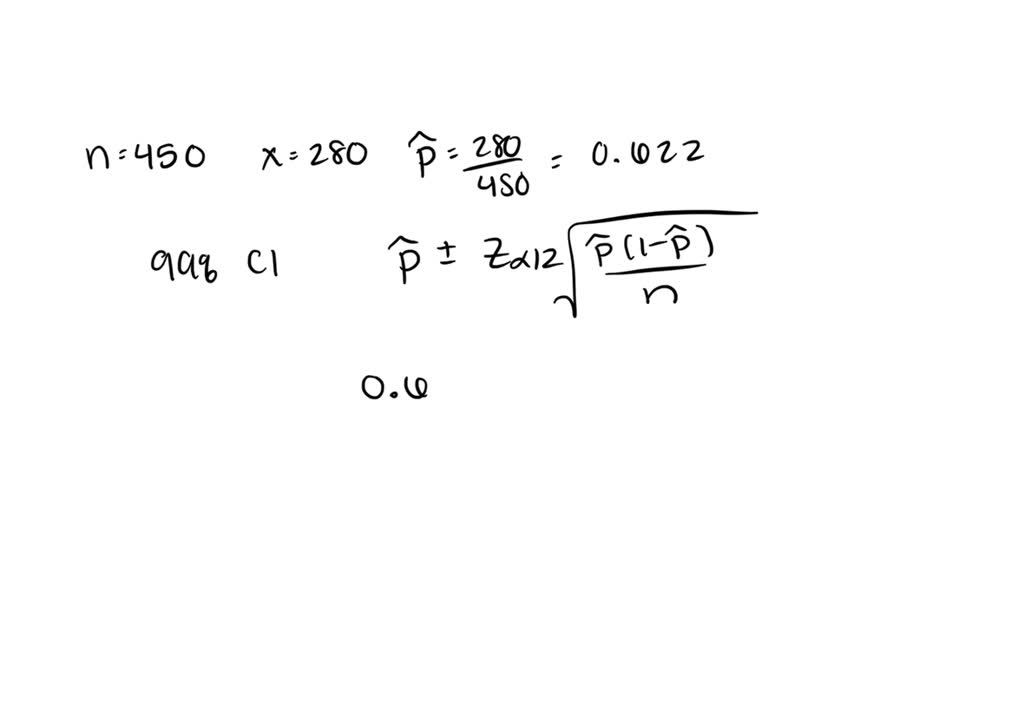 n=450 x=280 p̂ = 280/450 = 0.622
99% CI p̂ ± Zα/2 √(p̂(1-p̂)/n)
0.6